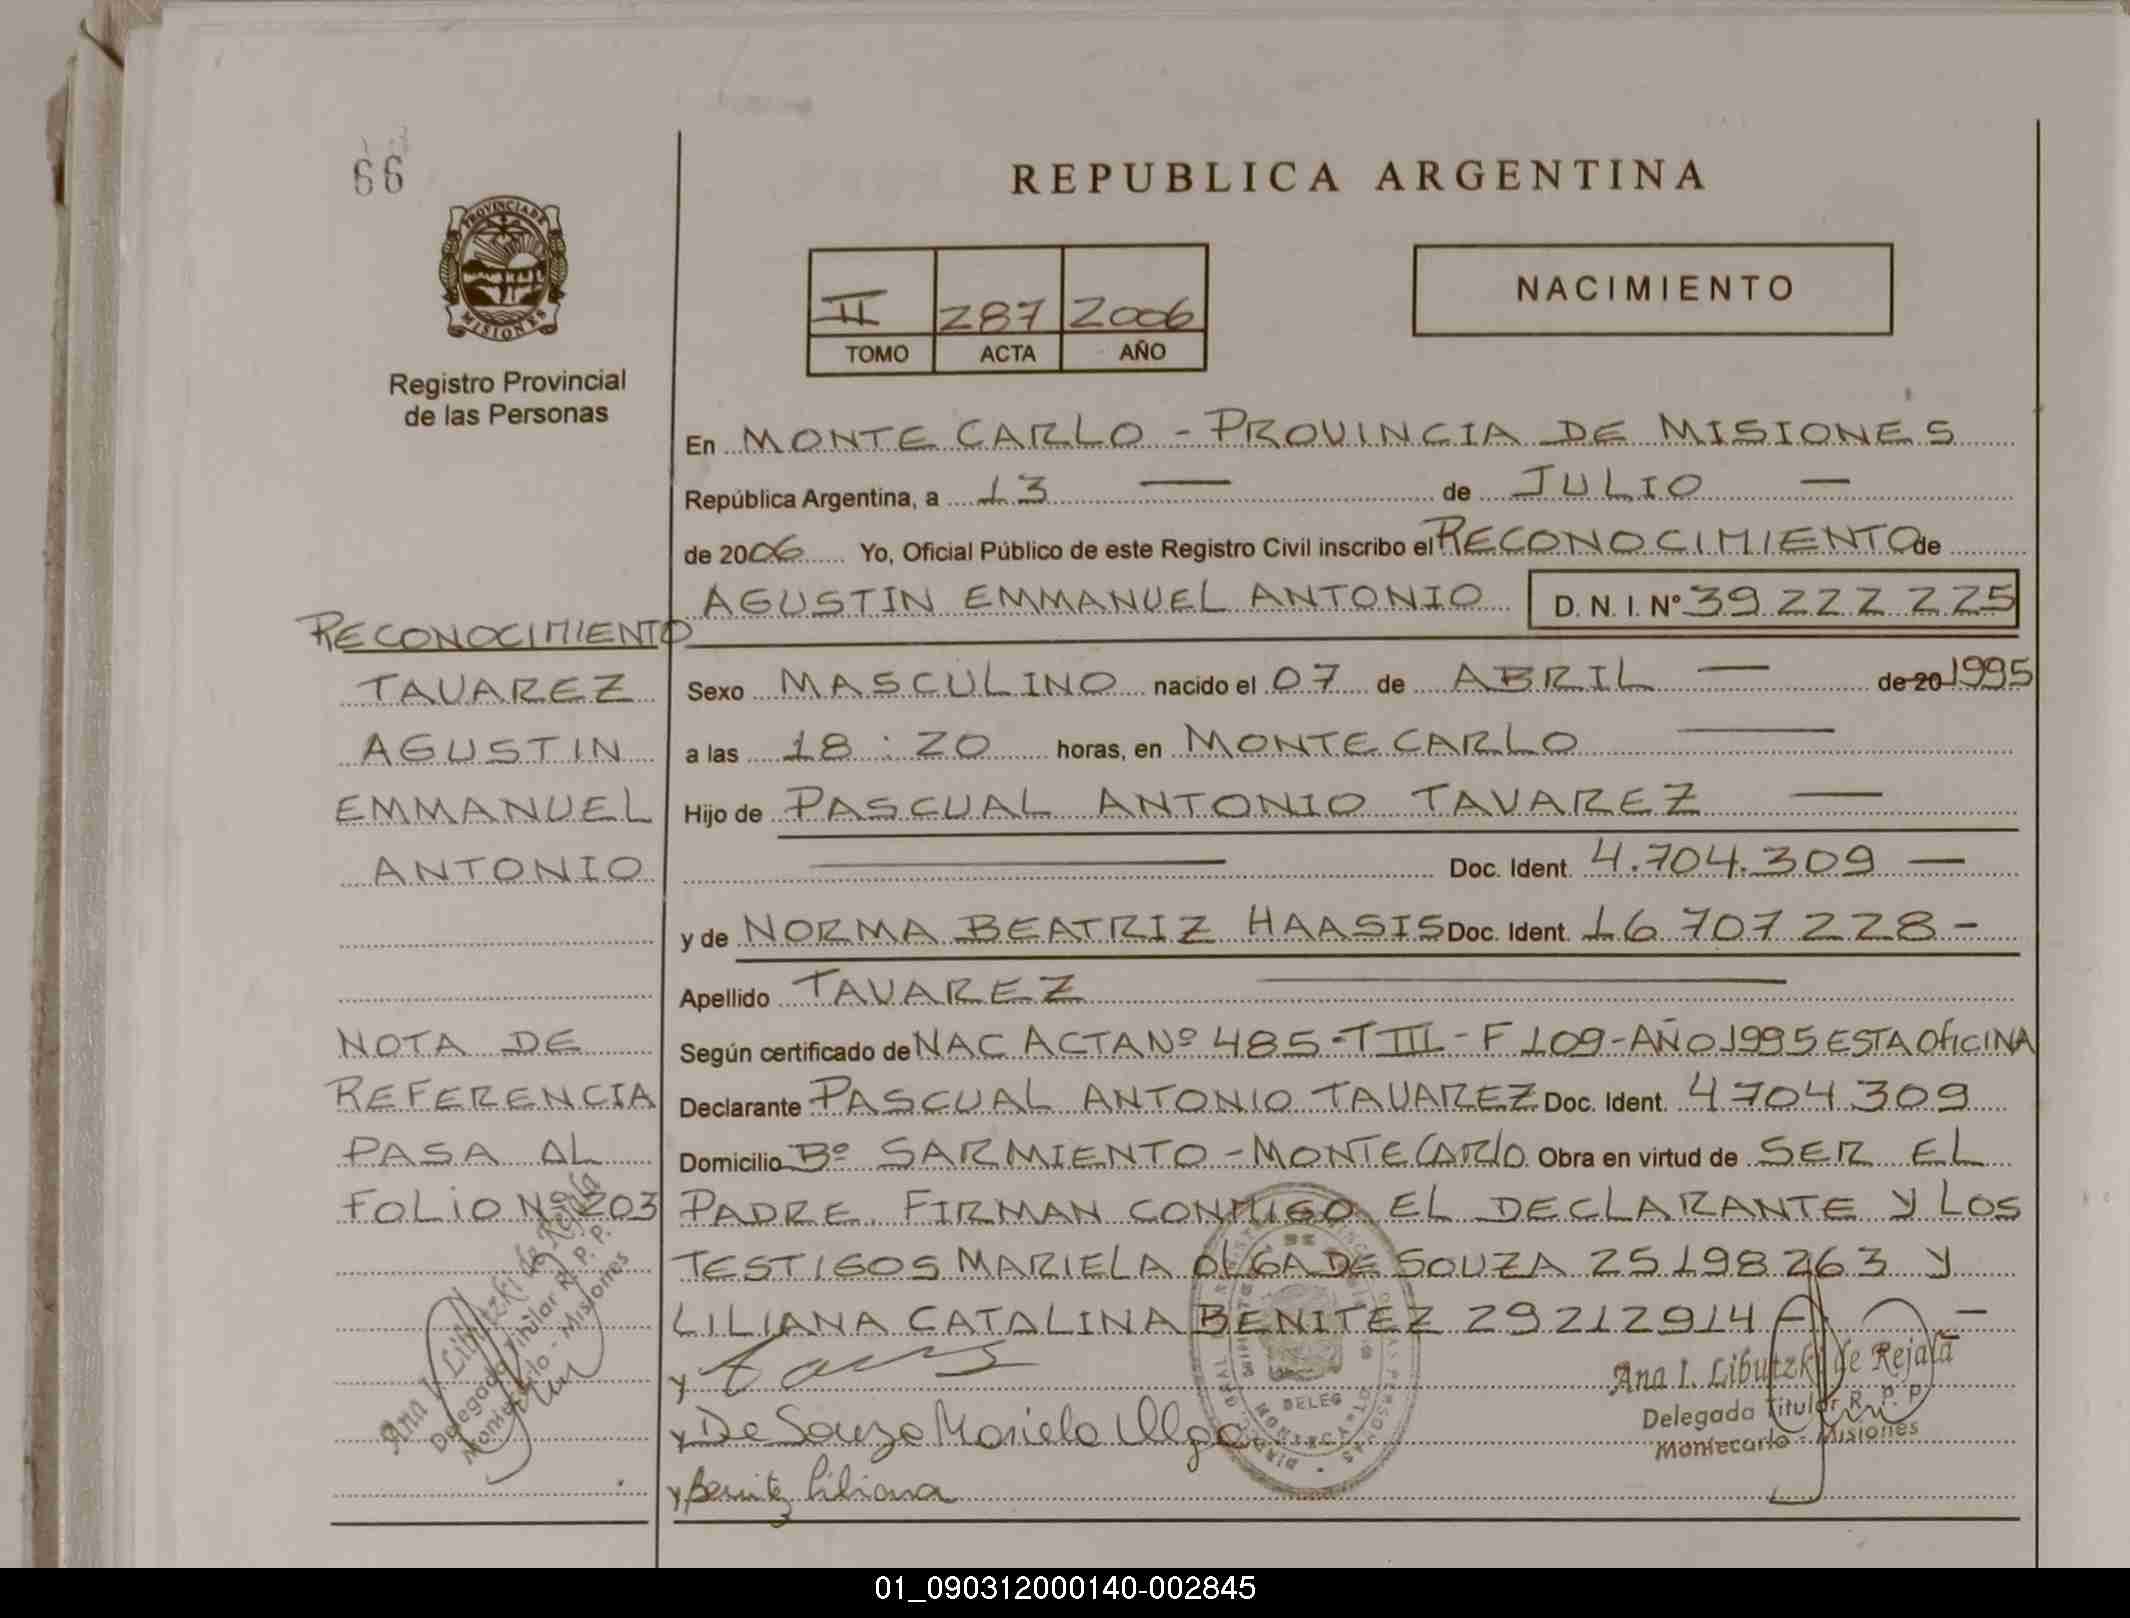 66
REPUBLICA ARGENTINA
PROVINCIA DE
MISIONES
Registro Provincial
de las Personas
II 287 2006
TOMO ACTA AÑO
NACIMIENTO
En MONTE CARLO - PROVINCIA DE MISIONES
República Argentina, a 13 — de JULIO —
de 2006 Yo, Oficial Público de este Registro Civil inscribo el RECONOCIMIENTO de
AGUSTIN EMMANUEL ANTONIO D. N. I. Nº 39 222 225
RECONOCIMIENTO
TAVAREZ
AGUSTIN
EMMANUEL
ANTONIO
Sexo MASCULINO nacido el 07 de ABRIL — de 20 1995
a las 18:20 horas, en MONTE CARLO —
Hijo de PASCUAL ANTONIO TAVAREZ —
— Doc. Ident. 4.704.309 —
y de NORMA BEATRIZ HAASIS Doc. Ident. 16 707 228 -
Apellido TAVAREZ —
Según certificado de NAC ACTA Nº 485 - T III - F 109 - AÑO 1995 ESTA OFICINA
Declarante PASCUAL ANTONIO TAVAREZ Doc. Ident. 4 704 309
Domicilio Bº SARMIENTO - MONTECARLO Obra en virtud de SER EL
PADRE. FIRMAN CONMIGO EL DECLARANTE Y LOS
TESTIGOS MARIELA OLGA DE SOUZA 25 198 263 y
LILIANA CATALINA BENITEZ 29212914 —
NOTA DE
REFERENCIA
PASA AL
FOLIO Nº 203
Ana I. Libutzki de Rejala
Delegada Titular R. P. P.
Montecarlo - Misiones
y
y De Souza Mariela Olga
y Benitez Liliana
DELEG
Ana I. Libutzki de Rejala
Delegada Titular R. P. P
Montecarlo - Misiones
01_090312000140-002845